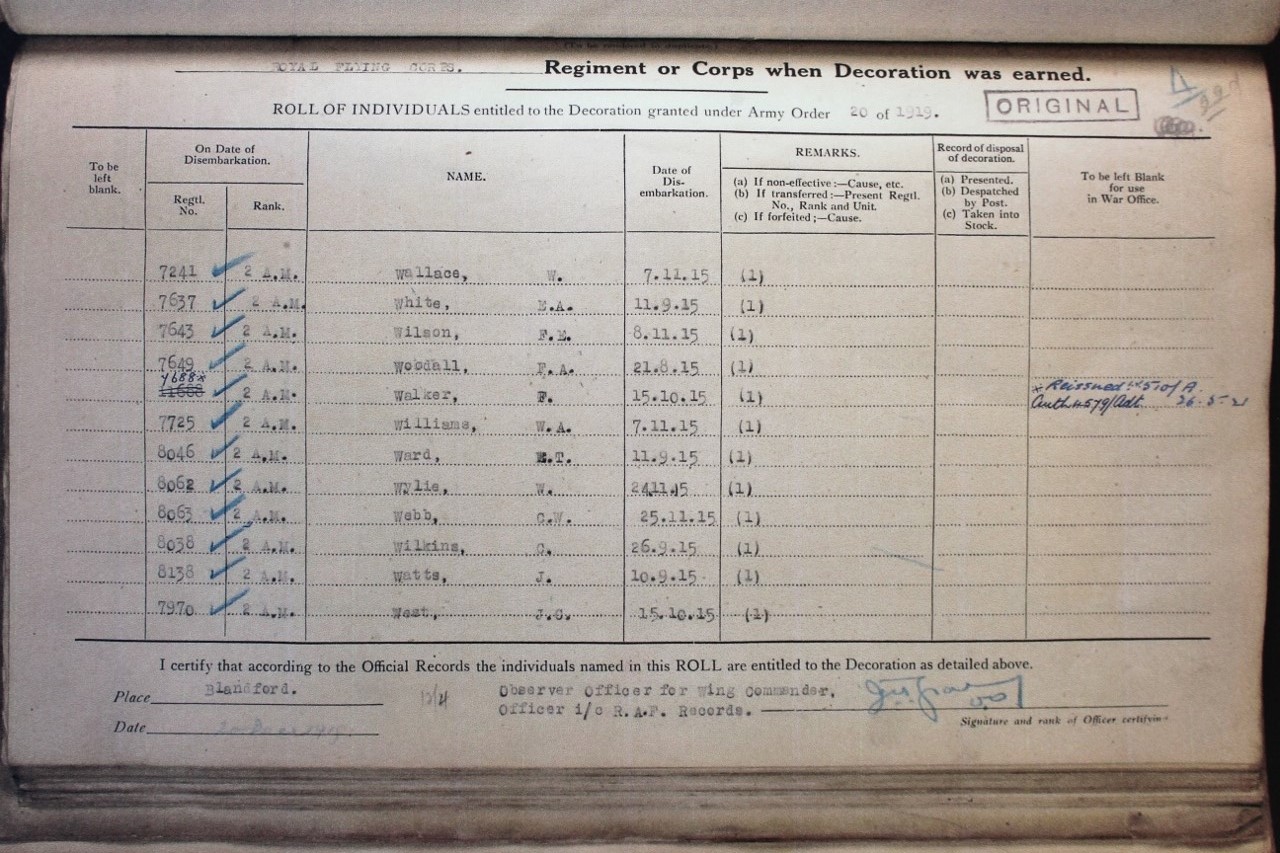 (To be rendered in duplicate.)
ROYAL FLYING CORPS. Regiment or Corps when Decoration was earned.
ROLL OF INDIVIDUALS entitled to the Decoration granted under Army Order 20 of 1919.
ORIGINAL
To be left blank.
On Date of Disembarkation.
Regtl. No.
Rank.
NAME.
Date of Dis-embarkation.
REMARKS.
(a) If non-effective:—Cause, etc.
(b) If transferred:—Present Regtl. No., Rank and Unit.
(c) If forfeited;—Cause.
Record of disposal of decoration.
(a) Presented.
(b) Despatched by Post.
(c) Taken into Stock.
To be left Blank for use in War Office.
7241 2 A.M. Wallace, W. 7.11.15 (1)
7637 2 A.M. White, E.A. 11.9.15 (1)
7643 2 A.M. Wilson, F.E. 8.11.15 (1)
7649 2 A.M. Woodall, F.A. 21.8.15 (1)
7688* 11688 2 A.M. Walker, F. 15.10.15 (1) * Reissued
Auth 4579/Adt. 26-5-21
7725 2 A.M. Williams, W.A. 7.11.15 (1)
8046 2 A.M. Ward, E.T. 11.9.15 (1)
8062 2 A.M. Wylie, W. 24.11.15 (1)
8063 2 A.M. Webb, C.W. 25.11.15 (1)
8038 2 A.M. Wilkins, C. 26.9.15 (1)
8138 2 A.M. Watts, J. 10.9.15 (1)
7970 2 A.M. West, J.C. 15.10.15 (1)
I certify that according to the Official Records the individuals named in this ROLL are entitled to the Decoration as detailed above.
Place Blandford. 12/4 Observer Officer for Wing Commander,
Officer i/c R.A.F. Records.
Date
Signature and rank of Officer certifying